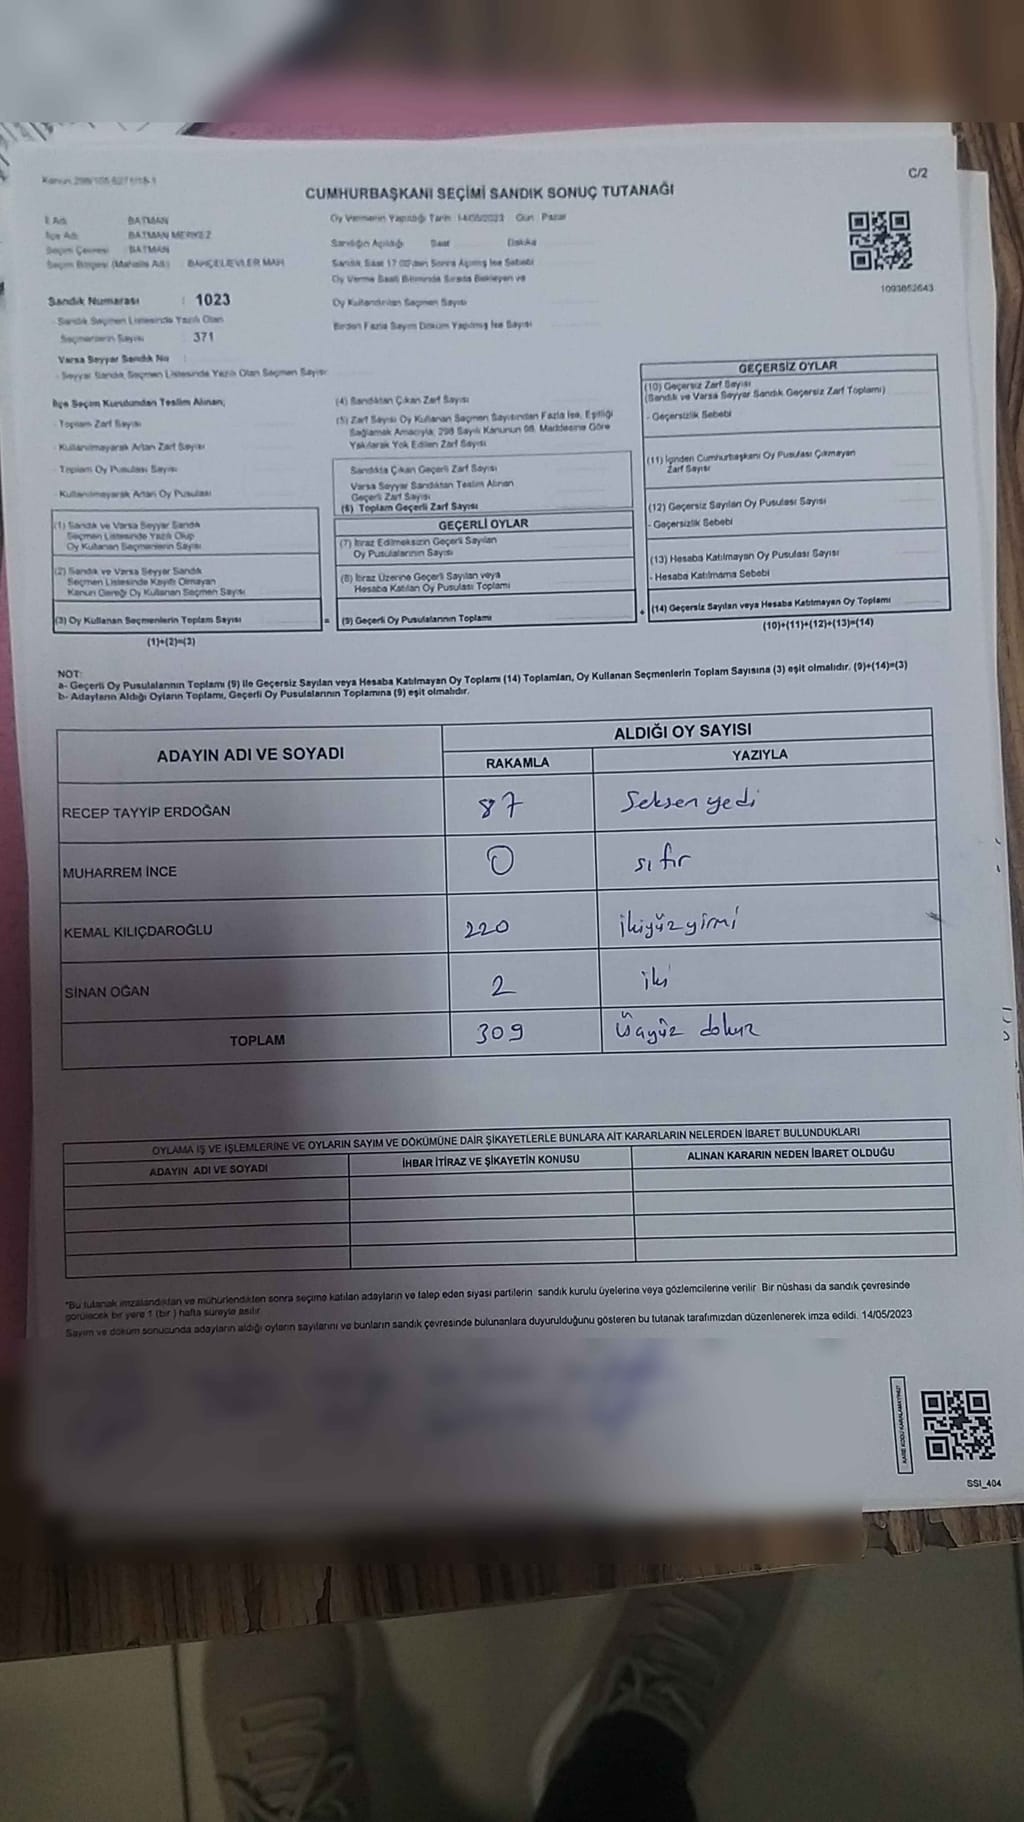 C/2
CUMHURBAŞKANI SEÇİMİ SANDIK SONUÇ TUTANAĞI
İl Adı BATMAN
İlçe Adı BATMAN MERKEZ
Seçim Çevresi BATMAN
Seçim Bölgesi (Mahalle Adı) BAHÇELİEVLER MAH
Sandık Numarası : 1023
- Sandık Seçmen Listesinde Yazılı Olan
Seçmenlerin Sayısı : 371
Varsa Seyyar Sandık No :
- Seyyar Sandık Seçmen Listesinde Yazılı Olan Seçmen Sayısı
Oy Vermenin Yapıldığı Tarih 14/05/2023 Gün : Pazar
Sandığın Açıldığı Saat Dakika
Sandık Saat 17:00'den Sonra Açılmış İse Sebebi
Oy Verme Saati Bitiminde Sırada Bekleyen ve
Oy Kullandırılan Seçmen Sayısı
Birden Fazla Sayım Döküm Yapılmış İse Sayısı
1093862643
İlçe Seçim Kurulundan Teslim Alınan;
- Toplam Zarf Sayısı
- Kullanılmayarak Artan Zarf Sayısı
- Toplam Oy Pusulası Sayısı
- Kullanılmayarak Artan Oy Pusulası
(1) Sandık ve Varsa Seyyar Sandık
Seçmen Listesinde Yazılı Olup
Oy Kullanan Seçmenlerin Sayısı
(2) Sandık ve Varsa Seyyar Sandık
Seçmen Listesinde Kayıtlı Olmayan
Kanun Gereği Oy Kullanan Seçmen Sayısı
(3) Oy Kullanan Seçmenlerin Toplam Sayısı
(1)+(2)=(3)
=
(4) Sandıktan Çıkan Zarf Sayısı
(5) Zarf Sayısı Oy Kullanan Seçmen Sayısından Fazla İse, Eşitliği
Sağlamak Amacıyla, 298 Sayılı Kanunun 98. Maddesine Göre
Yakılarak Yok Edilen Zarf Sayısı
Sandıkta Çıkan Geçerli Zarf Sayısı
Varsa Seyyar Sandıktan Teslim Alınan
Geçerli Zarf Sayısı
(6) Toplam Geçerli Zarf Sayısı
GEÇERLİ OYLAR
(7) İtiraz Edilmeksizin Geçerli Sayılan
Oy Pusulalarının Sayısı
(8) İtiraz Üzerine Geçerli Sayılan veya
Hesaba Katılan Oy Pusulası Toplamı
(9) Geçerli Oy Pusulalarının Toplamı
+
GEÇERSİZ OYLAR
(10) Geçersiz Zarf Sayısı
(Sandık ve Varsa Seyyar Sandık Geçersiz Zarf Toplamı)
- Geçersizlik Sebebi
(11) İçinden Cumhurbaşkanı Oy Pusulası Çıkmayan
Zarf Sayısı
(12) Geçersiz Sayılan Oy Pusulası Sayısı
- Geçersizlik Sebebi
(13) Hesaba Katılmayan Oy Pusulası Sayısı
- Hesaba Katılmama Sebebi
(14) Geçersiz Sayılan veya Hesaba Katılmayan Oy Toplamı
(10)+(11)+(12)+(13)=(14)
NOT:
a- Geçerli Oy Pusulalarının Toplamı (9) ile Geçersiz Sayılan veya Hesaba Katılmayan Oy Toplamı (14) Toplamları, Oy Kullanan Seçmenlerin Toplam Sayısına (3) eşit olmalıdır. (9)+(14)=(3)
b- Adayların Aldığı Oyların Toplamı, Geçerli Oy Pusulalarının Toplamına (9) eşit olmalıdır.
ADAYIN ADI VE SOYADI
ALDIĞI OY SAYISI
RAKAMLA YAZIYLA
RECEP TAYYİP ERDOĞAN 87 Seksen yedi
MUHARREM İNCE 0 sıfır
KEMAL KILIÇDAROĞLU 220 ikiyüz yirmi
SİNAN OĞAN 2 iki
TOPLAM 309 Üçyüz dokuz
OYLAMA İŞ VE İŞLEMLERİNE VE OYLARIN SAYIM VE DÖKÜMÜNE DAİR ŞİKAYETLERLE BUNLARA AİT KARARLARIN NELERDEN İBARET BULUNDUKLARI
ADAYIN ADI VE SOYADI İHBAR İTİRAZ VE ŞİKAYETİN KONUSU ALINAN KARARIN NEDEN İBARET OLDUĞU
*Bu tutanak imzalandıktan ve mühürlendikten sonra seçime katılan adayların ve talep eden siyasi partilerin sandık kurulu üyelerine veya gözlemcilerine verilir. Bir nüshası da sandık çevresinde
görülecek bir yere 1 (bir) hafta süreyle asılır.
Sayım ve döküm sonucunda adayların aldığı oyların sayılarını ve bunların sandık çevresinde bulunanlara duyurulduğunu gösteren bu tutanak tarafımızdan düzenlenerek imza edildi. 14/05/2023
SSI_404